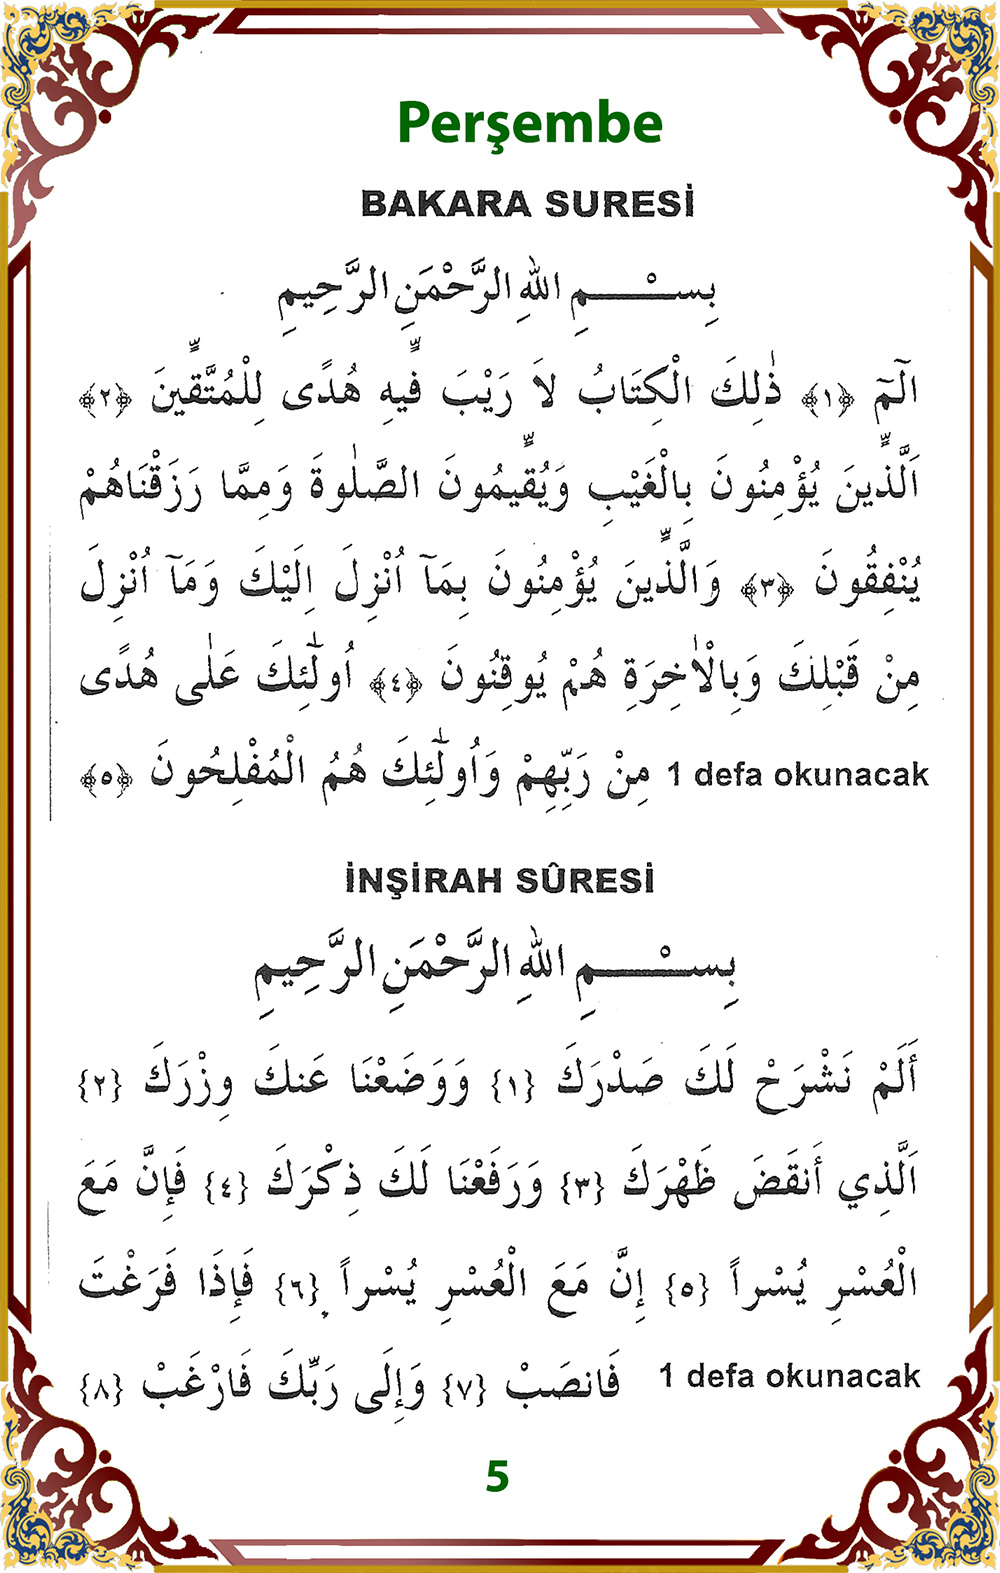 Perşembe
BAKARA SURESİ
بِسْــــمِ اللهِ الرَّحْمَنِ الرَّحِيمِ
الٓمٓ ﴿١﴾ ذٰلِكَ الْكِتَابُ لاَ رَيْبَ فِيهِ هُدًى لِلْمُتَّقِينَ ﴿٢﴾
اَلَّذِينَ يُؤْمِنُونَ بِالْغَيْبِ وَيُقِيمُونَ الصَّلٰوةَ وَمِمَّا رَزَقْنَاهُمْ
يُنْفِقُونَ ﴿٣﴾ وَالَّذِينَ يُؤْمِنُونَ بِمَآ اُنْزِلَ اِلَيْكَ وَمَآ اُنْزِلَ
مِنْ قَبْلِكَ وَبِالْاٰخِرَةِ هُمْ يُوقِنُونَ ﴿٤﴾ اُولٰٓئِكَ عَلٰى هُدًى
مِنْ رَبِّهِمْ وَاُولٰٓئِكَ هُمُ الْمُفْلِحُونَ ﴿٥﴾ 1 defa okunacak
İNŞİRAH SÛRESİ
بِسْــــمِ اللهِ الرَّحْمَنِ الرَّحِيمِ
أَلَمْ نَشْرَحْ لَكَ صَدْرَكَ {١} وَوَضَعْنَا عَنكَ وِزْرَكَ {٢}
اَلَّذِي أَنقَضَ ظَهْرَكَ {٣} وَرَفَعْنَا لَكَ ذِكْرَكَ {٤} فَإِنَّ مَعَ
الْعُسْرِ يُسْراً {٥} إِنَّ مَعَ الْعُسْرِ يُسْراً {٦} فَإِذَا فَرَغْتَ
فَانصَبْ {٧} وَإِلَى رَبِّكَ فَارْغَبْ {٨} 1 defa okunacak
5